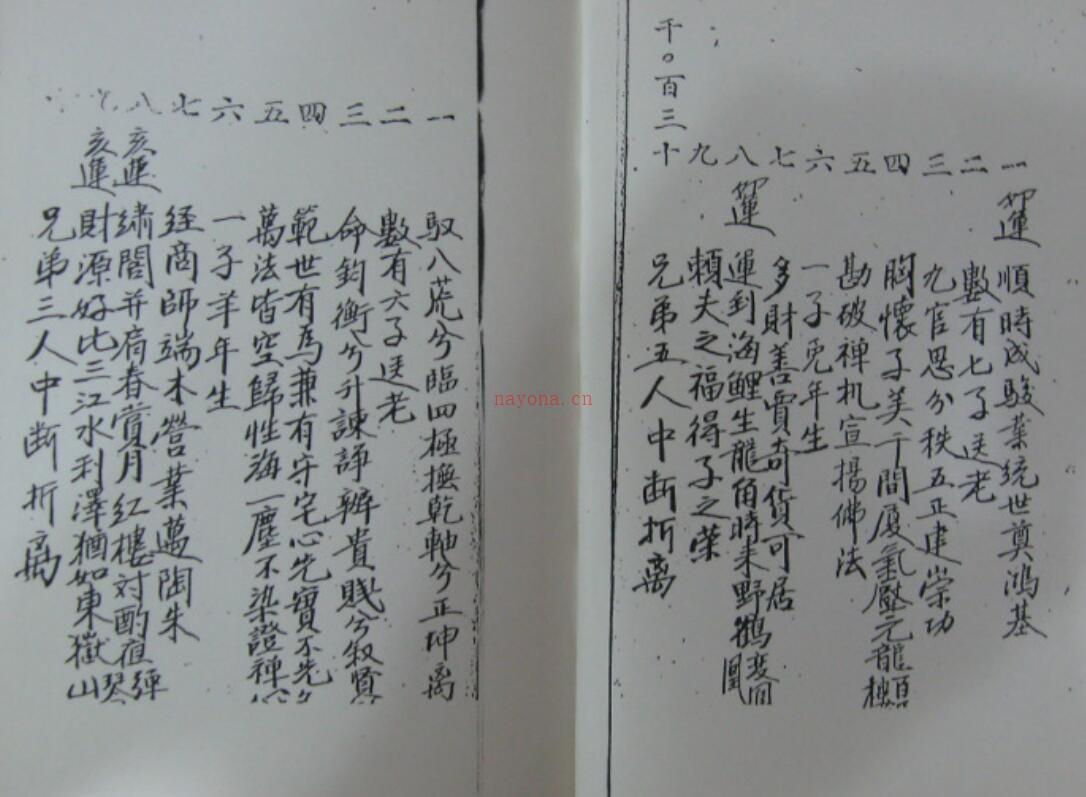 千〇百三十
一 卯運 順時成駿業統世奠鴻基
二 數有七子送老
三 九官思分秩五正建崇功
四 胸懷子美千間厦氣壓元龍百
五 勘破禅机宣揚佛法
六 一子兎年生
七 多財善賈奇貨可居
八 卯運 運到海鯉生龍角時来野鶴变凰
九 賴夫之福得子之荣
十 兄弟五人中断折离
一 馭八荒兮臨四極撫乾軸兮正坤离
二 數有六子送老
三 命鈞衡兮升諫諍辨貴賤兮叙賢
四 範世有為兼有守宅心先實不先
五 萬法皆空歸性海一塵不染證禅
六 一子羊年生
七 经商師端木營業邁陶朱
八 亥運 绣閣并肩春賞月红樓对酌夜弹
亥運 財源好比三江水利澤猶如東嶽山
兄弟三人中断折离
nayona.cn